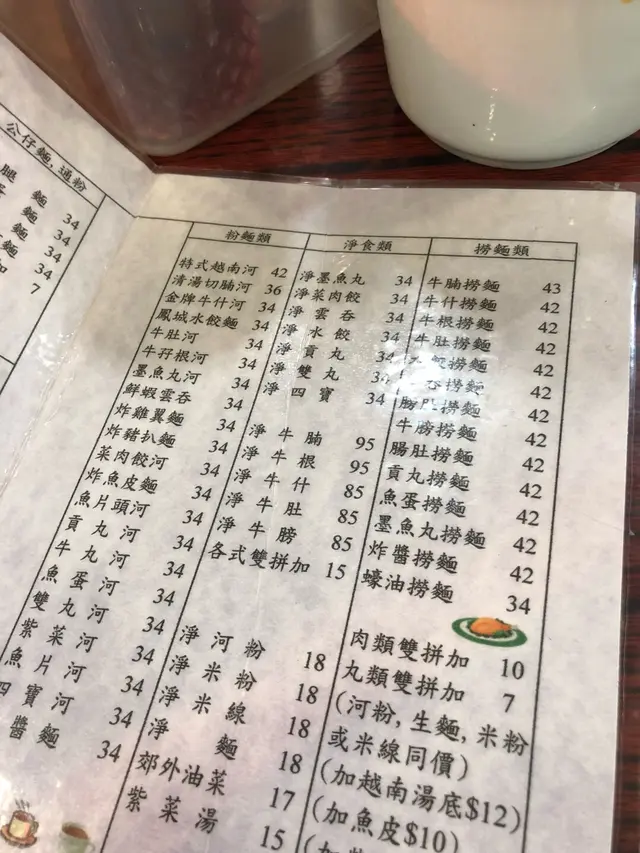 公仔麵, 通粉
腿 麵 34
麵 34
麵 34
麵 34
加 7
粉麵類
特式越南河 42
清湯切腩河 36
金牌牛什河 34
鳳城水餃麵 34
牛肚河 34
牛孖根河 34
墨魚丸河 34
鮮蝦雲吞 34
炸雞翼麵 34
炸豬扒麵 34
菜肉餃河 34
炸魚皮麵 34
魚片頭河 34
貢丸河 34
牛丸河 34
魚蛋河 34
雙丸河 34
紫菜河 34
魚片河 34
四寶河 34
醬麵 34
淨食類
淨墨魚丸 34
淨菜肉餃 34
淨雲吞 34
淨水餃 34
淨貢丸 34
淨雙丸 34
淨四寶 34
淨牛腩 95
淨牛根 95
淨牛什 85
淨牛肚 85
淨牛膀 85
各式雙拼加 15
淨河粉 18
淨米粉 18
淨米線 18
淨麵 18
郊外油菜 17
紫菜湯 15
撈麵類
牛腩撈麵 43
牛什撈麵 42
牛根撈麵 42
牛肚撈麵 42
餃撈麵 42
吞撈麵 42
肚撈麵 42
牛膀撈麵 42
腸肚撈麵 42
貢丸撈麵 42
魚蛋撈麵 42
墨魚丸撈麵 42
炸醬撈麵 42
蠔油撈麵 34
肉類雙拼加 10
丸類雙拼加 7
(河粉, 生麵, 米粉
或米線同價)
(加越南湯底$12)
(加魚皮$10)